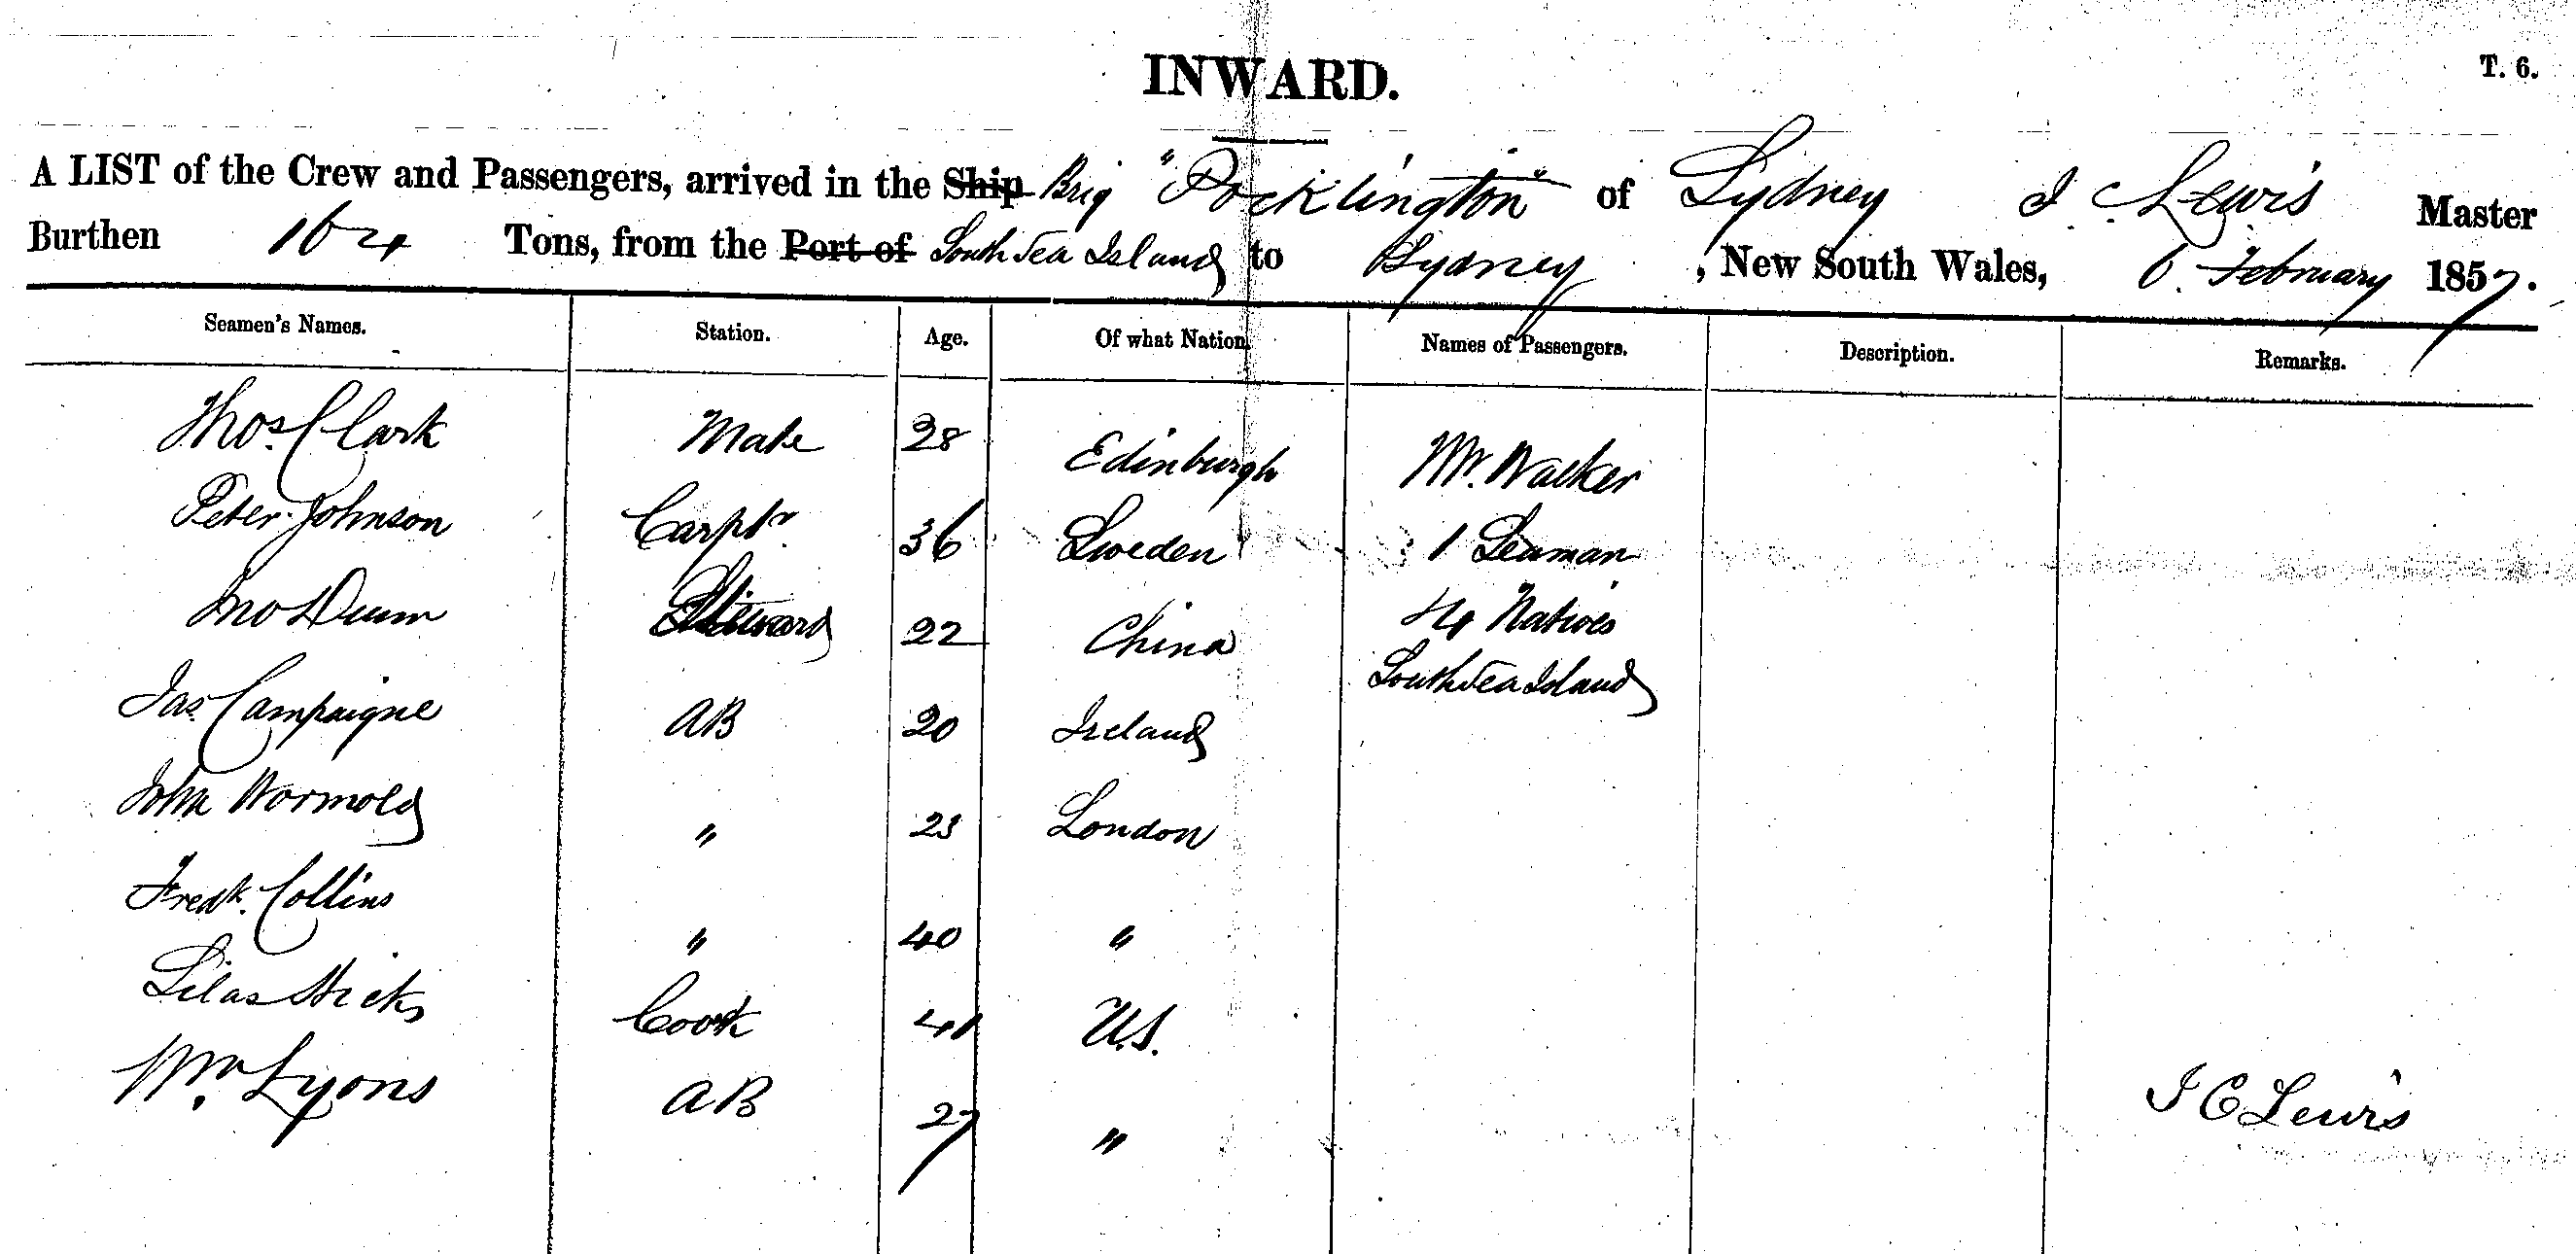 INWARD.
T. 6.
A LIST of the Crew and Passengers, arrived in the Ship Brig "Pocklington" of Sydney J C Lewis Master
Burthen 164 Tons, from the Port of South Sea Islands to Sydney, New South Wales, 6 February 1857.
Seamen's Names. Station. Age. Of what Nation. Names of Passengers. Description. Remarks.
Thos. Clark Mate 28 Edinburgh Mr. Walker
Peter Johnson Carptr 36 Sweden 1 Seaman
Jno Steward 22 China Natives
South Sea Islands
Jas. Campaigne AB 20 Ireland
John Wormold " 23 London
Fredk. Collins " 40 "
Silas Hicks Cook 41 U.S.
Wm. Lyons AB 27 "
J C Lewis